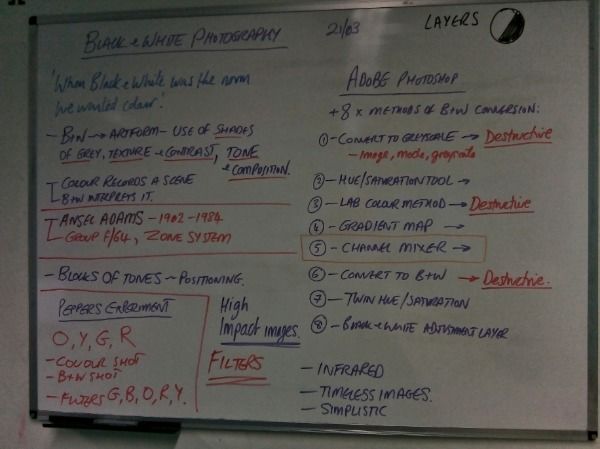 BLACK & WHITE PHOTOGRAPHY
21/03
LAYERS
'When Black & White was the norm
we wanted colour.'
- B&W → ARTFORM - USE OF SHADES
OF GREY, TEXTURE & CONTRAST, TONE
& COMPOSITION.
COLOUR RECORDS A SCENE
B&W INTERPRETS IT.
- ANSEL ADAMS - 1902 - 1984
- GROUP F/64, ZONE SYSTEM
- BLOCKS OF TONES - POSITIONING.
PEPPERS EXPERIMENT
O, Y, G, R
- COLOUR SHOT
- B&W SHOT
- FILTERS G, B, O, R, Y.
High
Impact images.
FILTERS
ADOBE PHOTOSHOP
+8 x METHODS OF B&W CONVERSION:
① - CONVERT TO GREYSCALE → Destructive
- image, mode, grayscale
② - HUE/SATURATION TOOL →
③ - LAB COLOUR METHOD → Destructive
④ - GRADIENT MAP →
⑤ - CHANNEL MIXER →
⑥ - CONVERT TO B&W → Destructive.
⑦ - TWIN HUE/SATURATION
⑧ - BLACK & WHITE ADJUSTMENT LAYER
- INFRARED
- TIMELESS IMAGES.
- SIMPLISTIC